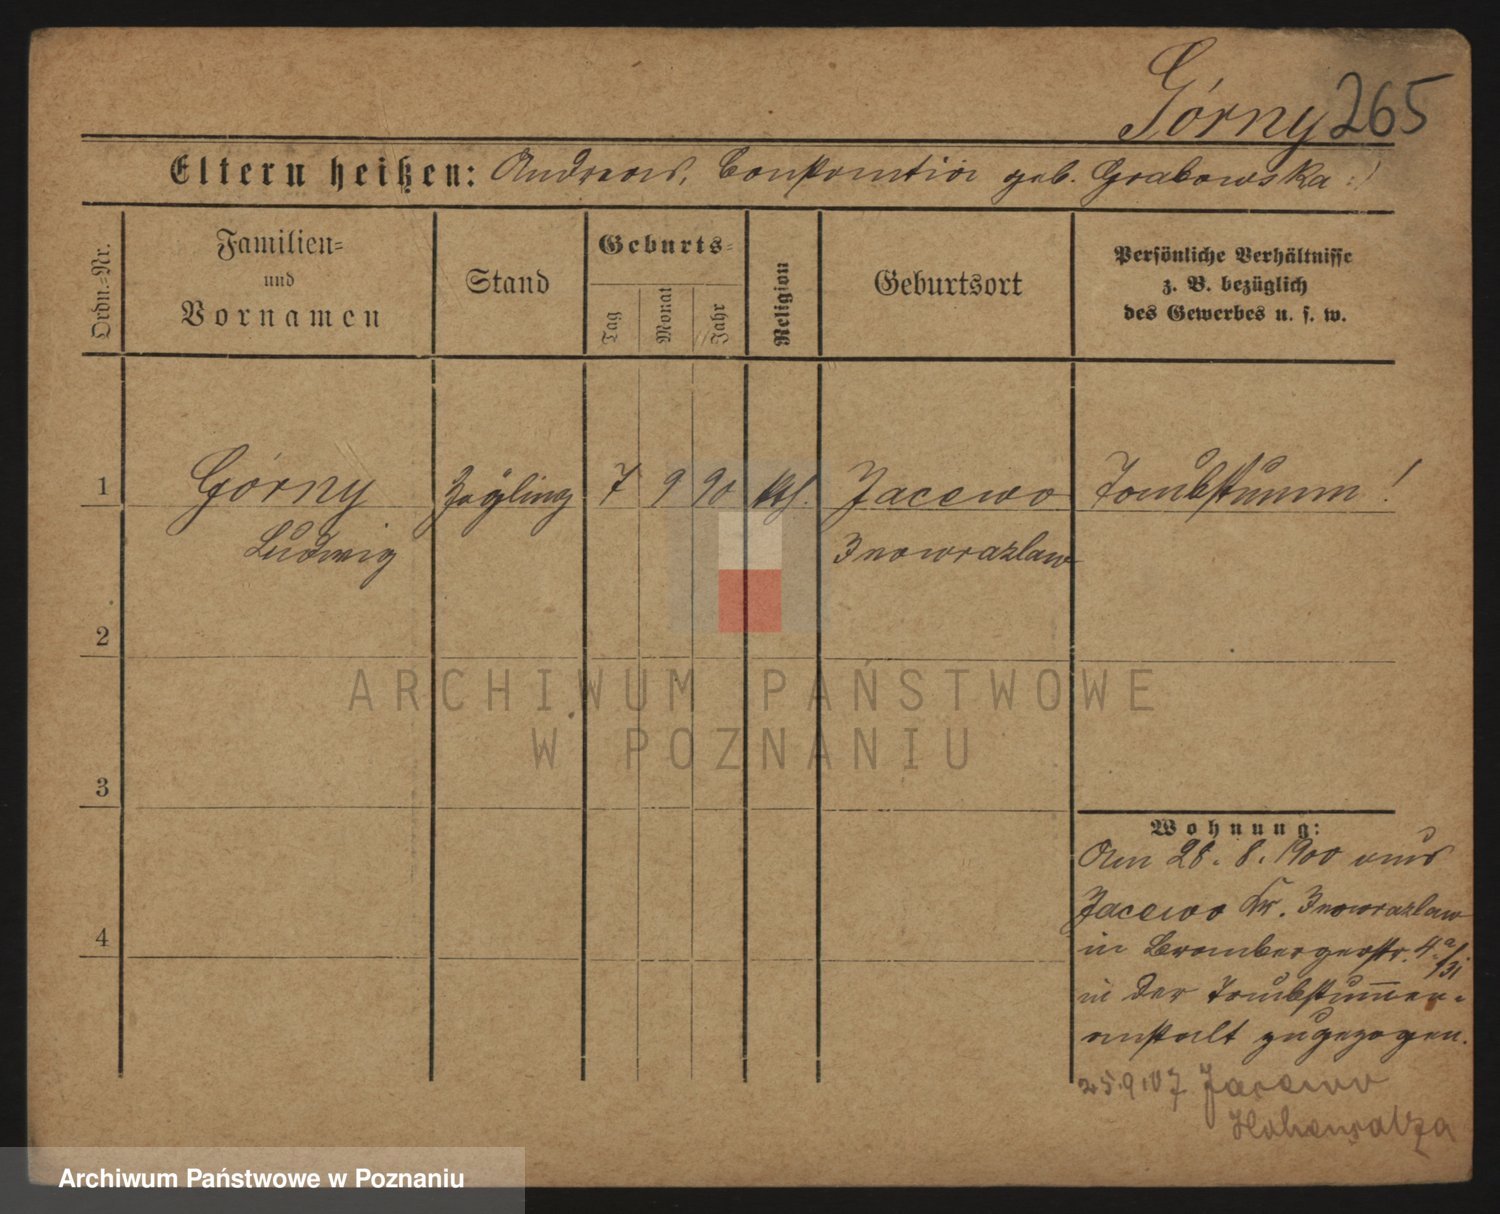 Górny 265
Eltern heißen: Andreas, Constantia geb. Grabowska
Ordn.-Nr.
Familien-
und
Vornamen
Stand
Geburts-
Tag
Monat
Jahr
Religion
Geburtsort
Persönliche Verhältnisse
z. B. bezüglich
des Gewerbes u. s. w.
1 Górny Zögling 7 9 90 kth. Jacewo Taubstumm!
Ludwig Inowrazlaw
2
3
4
Wohnung:
Am 28. 8. 1900 aus
Jacewo Kr. Inowrazlaw
in Brombergerstr. 4a/131
in der Taubstummen-
anstalt zugezogen.
25.9.07 Jacewo
Hohensalza
ARCHIWUM PAŃSTWOWE
W POZNANIU
Archiwum Państwowe w Poznaniu